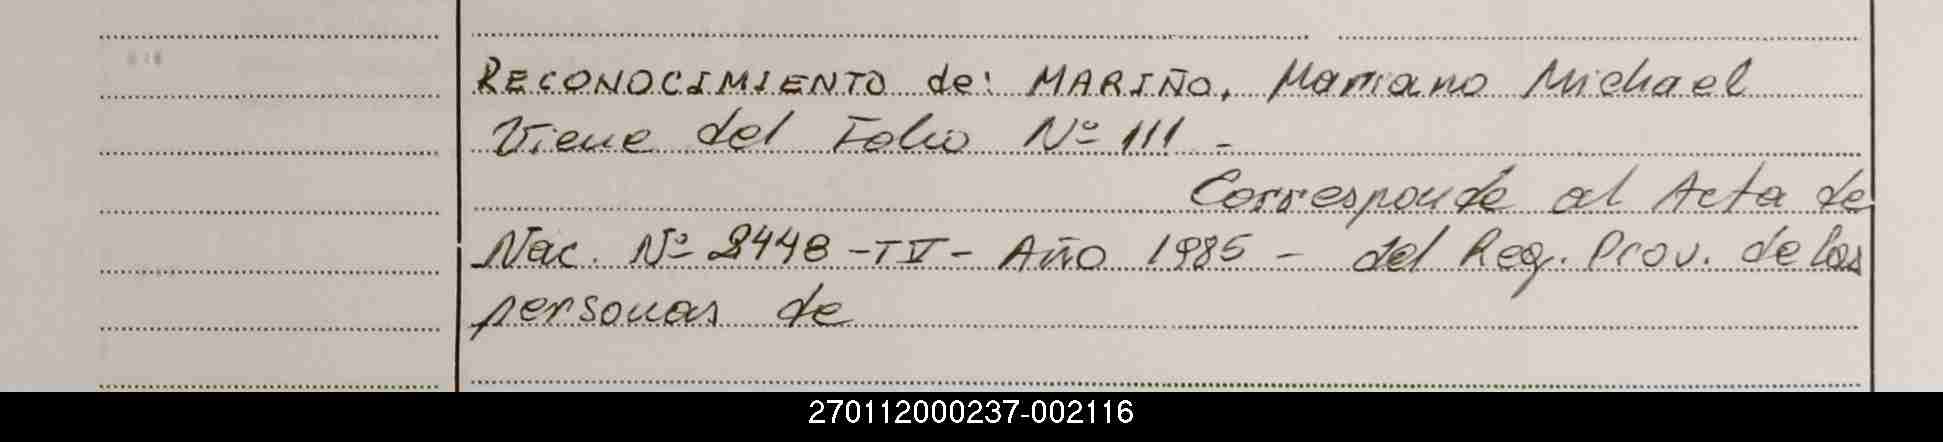 RECONOCIMIENTO de: MARIÑO, Mariano Michael
Viene del Folio Nº 111 -
Corresponde al Acta de
Nac. Nº 2448 - TV - Año 1985 - del Reg. Prov. de las
personas de
270112000237-002116